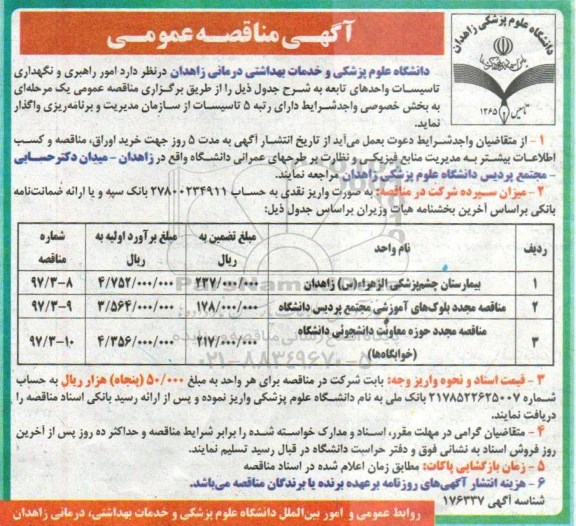 آگهی مناقصه عمومی
دانشگاه علوم پزشکی زاهدان
تأسیس ۱۳۶۵
دانشگاه علوم پزشکی و خدمات بهداشتی درمانی زاهدان درنظر دارد امور راهبری و نگهداری
تاسیسات واحدهای تابعه به شرح جدول ذیل را از طریق برگزاری مناقصه عمومی یک مرحله‌ای
به بخش خصوصی واجدشرایط دارای رتبه ۵ تاسیسات از سازمان مدیریت و برنامه‌ریزی واگذار
نماید.
۱ - از متقاضیان واجدشرایط دعوت بعمل می‌آید از تاریخ انتشار آگهی به مدت ۵ روز جهت خرید اوراق، مناقصه و کسب
اطلاعات بیشتر به مدیریت منابع فیزیکی و نظارت بر طرحهای عمرانی دانشگاه واقع در زاهدان - میدان دکترحسابی
- مجتمع پردیس دانشگاه علوم پزشکی زاهدان مراجعه نمایند.
۲ - میزان سپرده شرکت در مناقصه: به صورت واریز نقدی به حساب ۲۷۸۰۰۲۳۴۹۱۱ بانک سپه و یا ارائه ضمانت‌نامه
بانکی براساس آخرین بخشنامه هیات وزیران براساس جدول ذیل:
ردیف نام واحد مبلغ تضمین به ریال مبلغ برآورد اولیه به ریال شماره مناقصه
۱ بیمارستان چشم‌پزشکی الزهراء(س) زاهدان ۲۳۷/۰۰۰/۰۰۰ ۴/۷۵۲/۰۰۰/۰۰۰ ۹۷/۳-۸
۲ مناقصه مجدد بلوک‌های آموزشی مجتمع پردیس دانشگاه ۱۷۸/۰۰۰/۰۰۰ ۳/۵۶۴/۰۰۰/۰۰۰ ۹۷/۳-۹
۳ مناقصه مجدد حوزه معاونت دانشجوئی دانشگاه (خوابگاه‌ها) ۲۱۷/۰۰۰/۰۰۰ ۴/۳۵۶/۰۰۰/۰۰۰ ۹۷/۳-۱۰
۰۲۱-۸۸۳۴۹۶۷۰-۵
۳ - قیمت اسناد و نحوه واریز وجه: بابت شرکت در مناقصه برای هر واحد به مبلغ ۵۰/۰۰۰ (پنجاه) هزار ریال به حساب
شماره ۲۱۷۸۵۲۲۶۲۵۰۰۷ بانک ملی به نام دانشگاه علوم پزشکی واریز نموده و پس از ارائه رسید بانکی اسناد مناقصه را
دریافت نمایند.
۴ - متقاضیان گرامی در مهلت مقرر، اسناد و مدارک خواسته شده را برابر شرایط مناقصه و حداکثر ده روز پس از آخرین
روز فروش اسناد به نشانی فوق و دفتر حراست دانشگاه در قبال رسید تسلیم نمایند.
۵ - زمان بازگشایی پاکات: مطابق زمان اعلام شده در اسناد مناقصه
۶ - هزینه انتشار آگهی‌های روزنامه برعهده برنده یا برندگان مناقصه می‌باشد.
شناسه آگهی ۱۷۶۳۳۷
روابط عمومی و امور بین‌الملل دانشگاه علوم پزشکی و خدمات بهداشتی، درمانی زاهدان